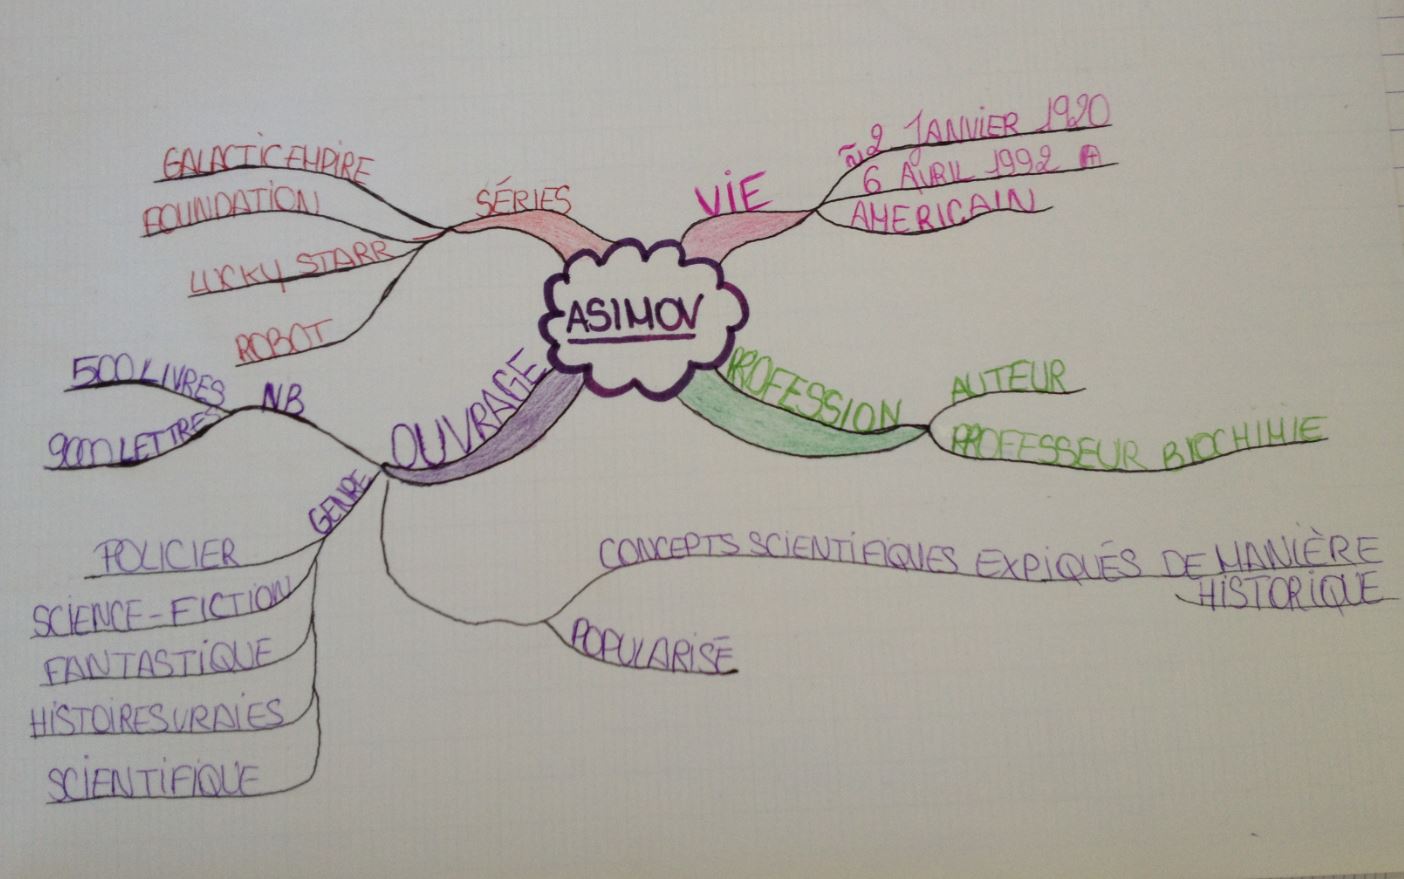 ASIMOV
VIE
~2 JANVIER 1920
6 AVRIL 1992
AMERICAIN
PROFESSION
AUTEUR
PROFESSEUR BIOCHIMIE
OUVRAGE
NB
500 LIVRES
9000 LETTRES
GENRE
POLICIER
SCIENCE-FICTION
FANTASTIQUE
HISTOIRES VRAIES
SCIENTIFIQUE
CONCEPTS SCIENTIFIQUES EXPIQUÉS DE MANIÈRE
HISTORIQUE
POPULARISÉ
SÉRIES
GALACTIC EMPIRE
FOUNDATION
LUCKY STARR
ROBOT